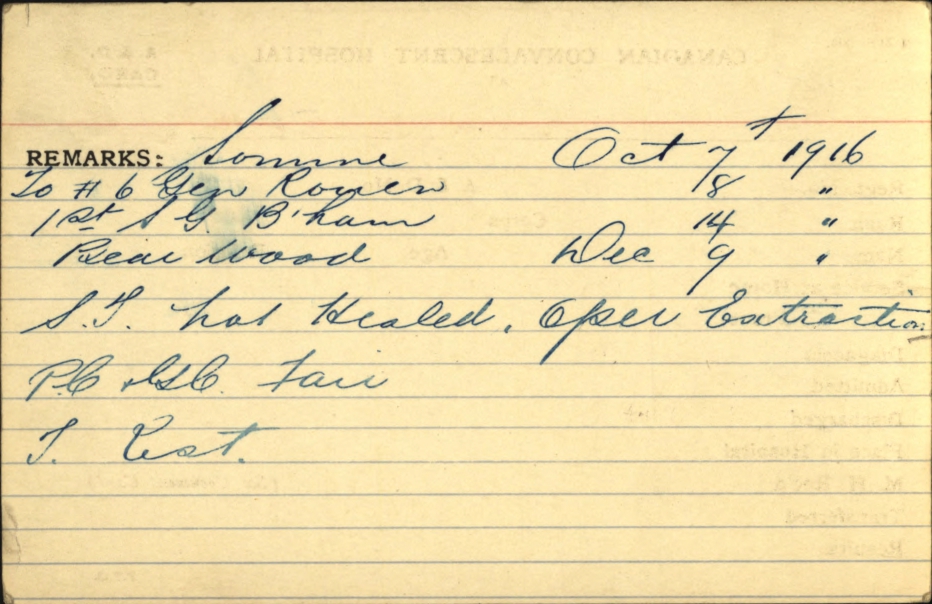 REMARKS: Somme Oct 7th 1916
To # 6 Gen Rouen 8 "
1st S G. B'ham 14 "
Bear Wood Dec 9 "
S.F. not Healed. Oper Extraction
P.C & G.C. fair
T. Rest.